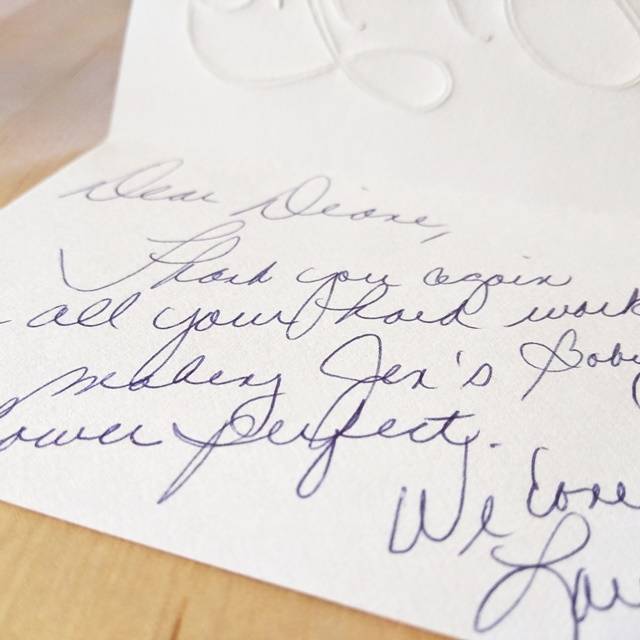 Dear Diane,
Thank you again
all your hard work
making Jen's Baby
hower perfect.
We